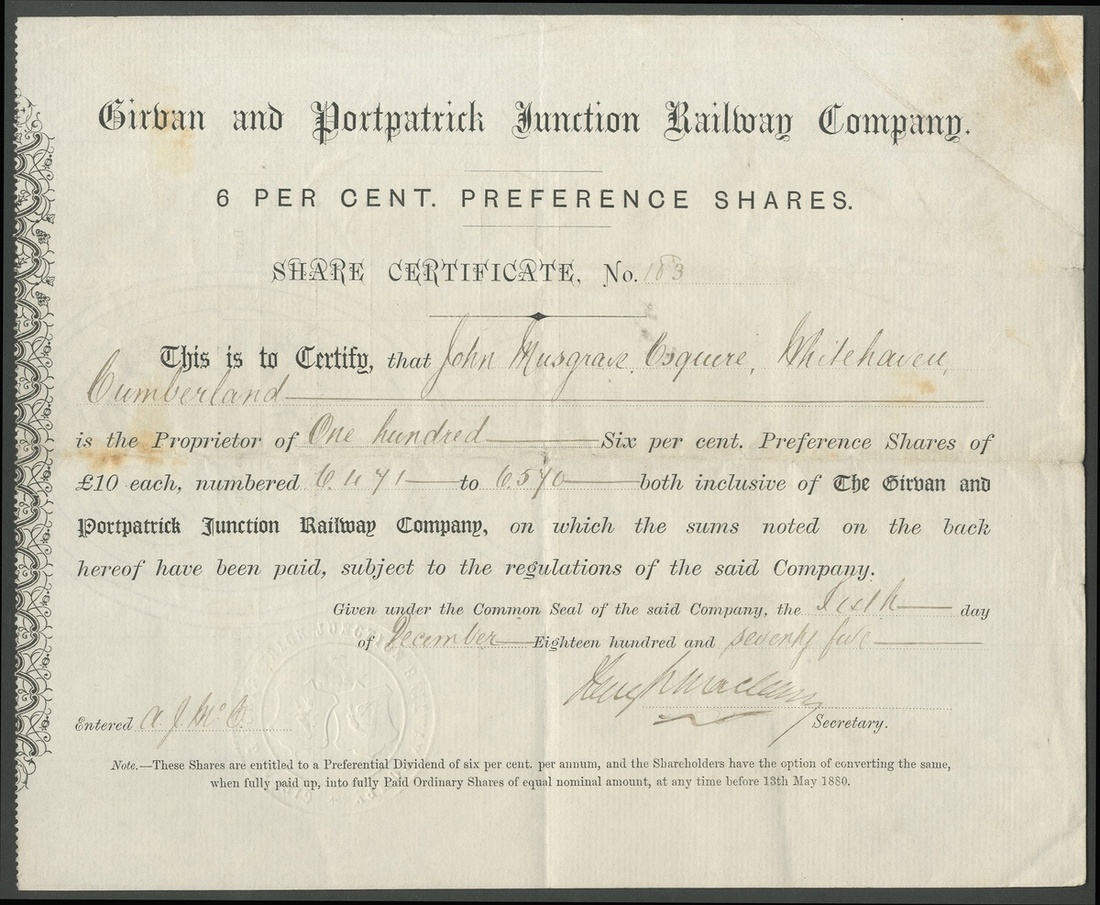 Girvan and Portpatrick Junction Railway Company.
6 PER CENT. PREFERENCE SHARES.
SHARE CERTIFICATE, No. 183
This is to Certify, that John Musgrave Esquire, Whitehaven,
Cumberland
is the Proprietor of One hundred Six per cent. Preference Shares of
£10 each, numbered 6.471 to 6.570 both inclusive of The Girvan and
Portpatrick Junction Railway Company, on which the sums noted on the back
hereof have been paid, subject to the regulations of the said Company.
Given under the Common Seal of the said Company, the Sixth day
of December Eighteen hundred and seventy five
Entered A. J. Secretary.
Note.—These Shares are entitled to a Preferential Dividend of six per cent. per annum, and the Shareholders have the option of converting the same,
when fully paid up, into fully Paid Ordinary Shares of equal nominal amount, at any time before 13th May 1880.